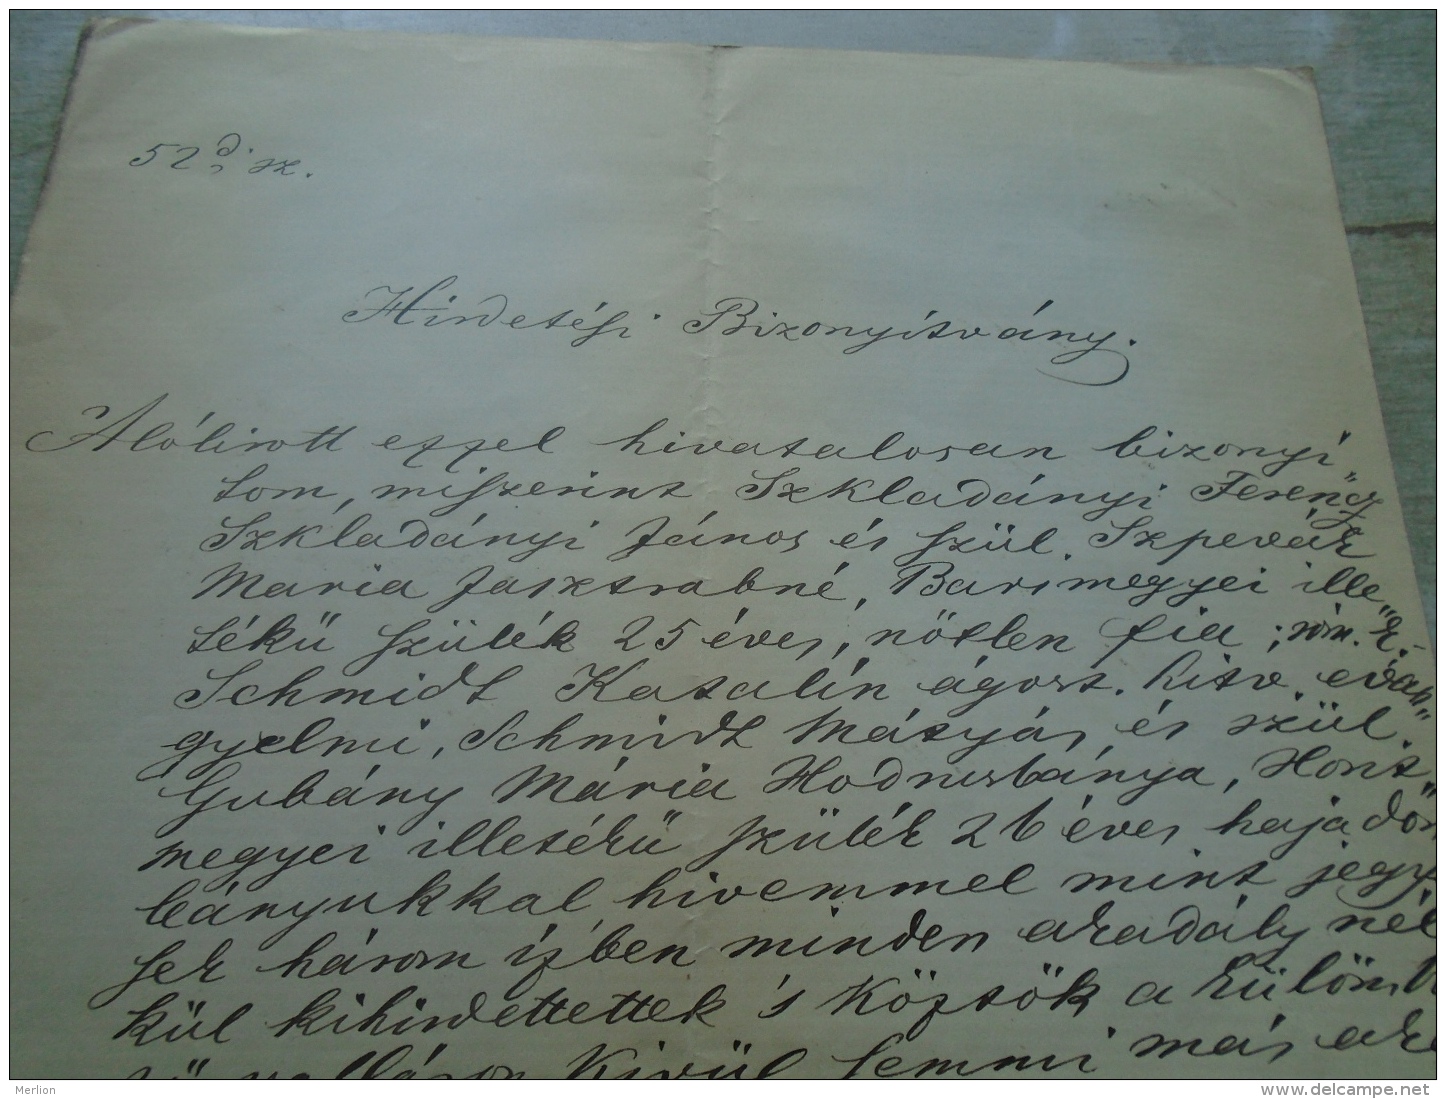 52 d. sz.
Hirdetési Bizonyítvány.
Alólirott ezzel hivatalosan bizonyí„
tom, miszerint Szkladányi Ferencz
Szkladányi János és szül. Szpevár
Maria Jasztrabné, Barsmegyei ille„
tékü szülék 25 éves, nőtlen fia ; róm. k.
Schmidt Katalin ágost. hitv. evan„
gyelmi, Schmidt Mátyás és szül.
Gubány Mária Hodrusbánya, Hont„
megyei illetékü szülék 26 éves hajadon
leányukkal, hivemmel mint jegy
sek három izben minden akadály nél
kül kihirdettettek 's köztök a külömb
ző valláson kivül semmi más aka
Merlion
www.delcampe.net